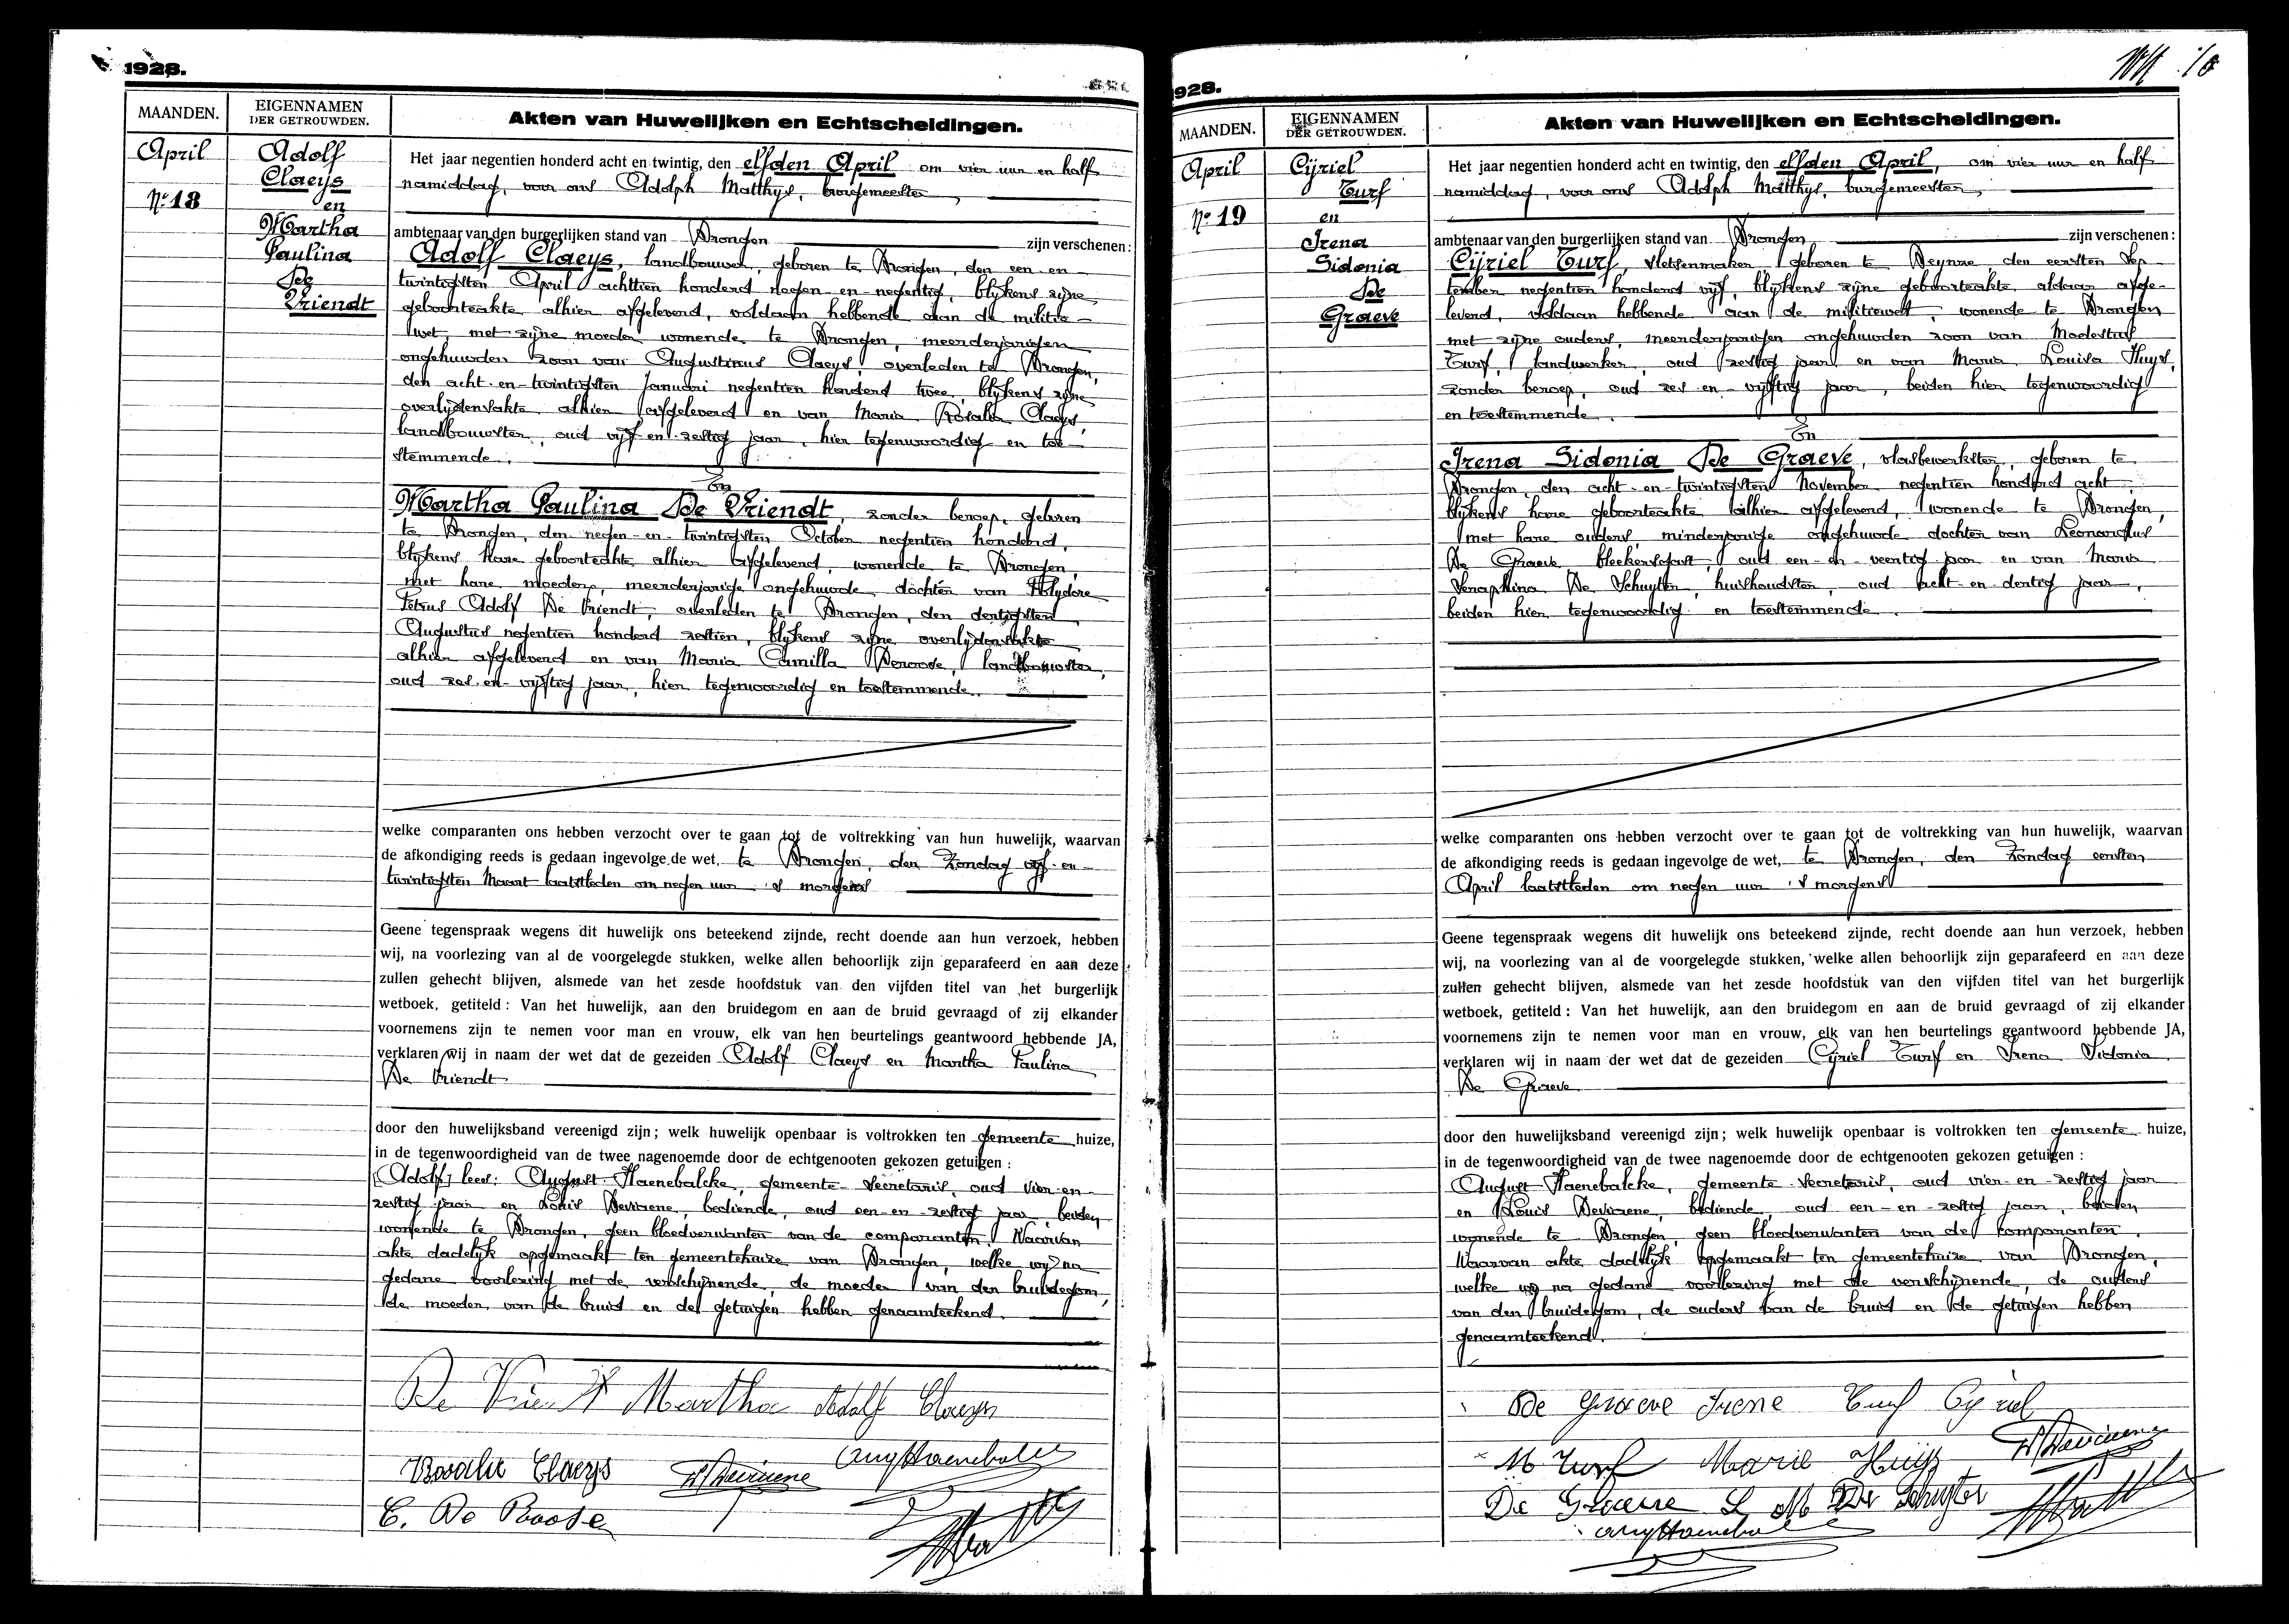 1928.
MAANDEN.
EIGENNAMEN
DER GETROUWDEN.
Akten van Huwelijken en Echtscheidingen.
April
Nº 18
Adolf
Claeys
en
Martha
Paulina
De
Vriendt
Het jaar negentien honderd acht en twintig, den elfden April om vier uur en half
namiddag, voor ons Adolph Matthys, burgemeester,
ambtenaar van den burgerlijken stand van Drongen zijn verschenen:
Adolf Claeys, landbouwer, geboren te Drongen, den een-en-
twintigsten April achttien honderd negen-en-negentig, blijkens zijne
geboorteakte alhier afgeleverd, voldaan hebbende aan de militie-
wet, met zijne moeder wonende te Drongen, meerderjarigen
ongehuwden zoon van Augustinus Claeys, overleden te Drongen,
den acht-en-twintigsten Januari negentien honderd twee, blijkens zijne
overlijdensakte alhier afgeleverd en van Maria Rosalia Claeys,
landbouwster, oud vijf-en-zestig jaar, hier tegenwoordig en toe-
stemmende.
En
Martha Paulina De Vriendt, zonder beroep, geboren
te Drongen, den negen-en-twintigsten October negentien honderd,
blijkens hare geboorteakte alhier afgeleverd, wonende te Drongen,
met hare moeder, meerderjarige ongehuwde dochter van Polydore
Petrus Adolf De Vriendt, overleden te Drongen, den dertigsten
Augustus negentien honderd zestien, blijkens zijne overlijdensakte
alhier afgeleverd en van Maria Camilla Deroose, landbouwster,
oud zes-en-vijftig jaar, hier tegenwoordig en toestemmende.
welke comparanten ons hebben verzocht over te gaan tot de voltrekking van hun huwelijk, waarvan
de afkondiging reeds is gedaan ingevolge de wet, te Drongen, den Zondag vijf-en-
twintigsten Maart laatstleden om negen uur 's morgens
Geene tegenspraak wegens dit huwelijk ons beteekend zijnde, recht doende aan hun verzoek, hebben
wij, na voorlezing van al de voorgelegde stukken, welke allen behoorlijk zijn geparafeerd en aan deze
zullen gehecht blijven, alsmede van het zesde hoofdstuk van den vijfden titel van het burgerlijk
wetboek, getiteld: Van het huwelijk, aan den bruidegom en aan de bruid gevraagd of zij elkander
voornemens zijn te nemen voor man en vrouw, elk van hen beurtelings geantwoord hebbende JA,
verklaren wij in naam der wet dat de gezeiden Adolf Claeys en Martha Paulina
De Vriendt
door den huwelijksband vereenigd zijn; welk huwelijk openbaar is voltrokken ten gemeente huize,
in de tegenwoordigheid van de twee nagenoemde door de echtgenooten gekozen getuigen:
(Adolf) lees: August Haenebalcke, gemeente-secretaris, oud vier-en-
zestig jaar en Louis Deviaene, bediende, oud een-en-zestig jaar, beiden
wonende te Drongen, geen bloedverwanten van de comparanten. Waarvan
akte dadelijk opgemaakt ten gemeentehuize van Drongen, welke wij na
gedane voorlezing met de verschijnende, de moeder van den bruidegom,
de moeder van de bruid en de getuigen hebben genaamteekend.
De Vriendt Martha Adolf Claeys
Rosalie Claeys L Deviaene Aug Haenebalcke
C. De Roose
1928.
MAANDEN.
EIGENNAMEN
DER GETROUWDEN.
Akten van Huwelijken en Echtscheidingen.
April
Nº 19
Cijriel
Turf
en
Irena
Sidonia
De
Graeve
Het jaar negentien honderd acht en twintig, den elfden April, om vier uur en half
namiddag, voor ons Adolph Matthys, burgemeester,
ambtenaar van den burgerlijken stand van Drongen zijn verschenen:
Cijriel Turf, sletsenmaker, geboren te Deynze, den eersten Sep-
tember negentien honderd vijf, blijkens zijne geboorteakte aldaar afge-
leverd, voldaan hebbende aan de militiewet, wonende te Drongen
met zijne ouders, meerderjarigen ongehuwden zoon van Modestus
Turf, landwerker, oud zestig jaar en van Maria Louisa Huys,
zonder beroep, oud zes-en-vijftig jaar, beiden hier tegenwoordig
en toestemmende.
En
Irena Sidonia De Graeve, vlasbewerkster, geboren te
Drongen, den acht-en-twintigsten November negentien honderd acht,
blijkens hare geboorteakte alhier afgeleverd, wonende te Drongen,
met hare ouders, minderjarige ongehuwde dochter van Leonardus
De Graeve bleekersgast, oud een-en-veertig jaar en van Maria
Seraphina De Schuyter, huishoudster, oud acht-en-dertig jaar,
beiden hier tegenwoordig en toestemmende.
welke comparanten ons hebben verzocht over te gaan tot de voltrekking van hun huwelijk, waarvan
de afkondiging reeds is gedaan ingevolge de wet, te Drongen, den Zondag eersten
April laatstleden om negen uur 's morgens
Geene tegenspraak wegens dit huwelijk ons beteekend zijnde, recht doende aan hun verzoek, hebben
wij, na voorlezing van al de voorgelegde stukken, welke allen behoorlijk zijn geparafeerd en aan deze
zullen gehecht blijven, alsmede van het zesde hoofdstuk van den vijfden titel van het burgerlijk
wetboek, getiteld: Van het huwelijk, aan den bruidegom en aan de bruid gevraagd of zij elkander
voornemens zijn te nemen voor man en vrouw, elk van hen beurtelings geantwoord hebbende JA,
verklaren wij in naam der wet dat de gezeiden Cyriel Turf en Irena Sidonia
De Graeve
door den huwelijksband vereenigd zijn; welk huwelijk openbaar is voltrokken ten gemeente huize,
in de tegenwoordigheid van de twee nagenoemde door de echtgenooten gekozen getuigen:
August Haenebalcke, gemeente-secretaris, oud vier-en-zestig jaar
en Louis Deviaene, bediende, oud een-en-zestig jaar, beiden
wonende te Drongen, geen bloedverwanten van de comparanten.
Waarvan akte dadelijk opgemaakt ten gemeentehuize van Drongen,
welke wij na gedane voorlezing met de verschijnende, de ouders
van den bruidegom, de ouders van de bruid en de getuigen hebben
genaamteekend.
De Graeve Irene Turf Cyriel
M Turf Marie Huijs L Deviaene
De Graeve L M De Schuyter
Aug Haenebalcke